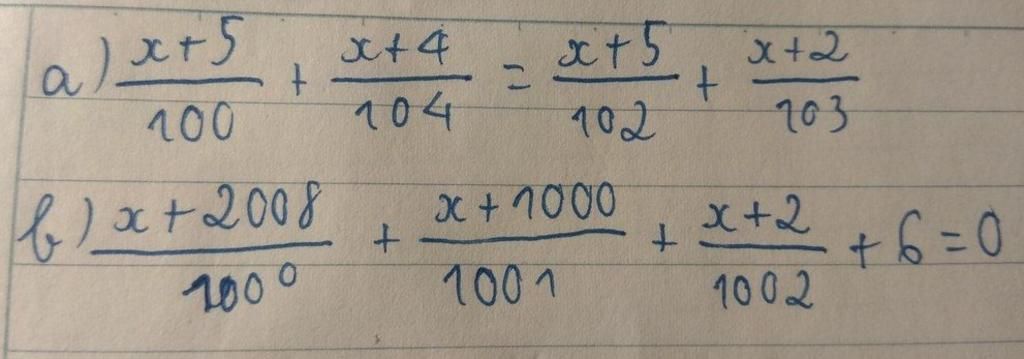 a) (x+5)/100 + (x+4)/104 = (x+5)/102 + (x+2)/103
b) (x+2008)/1000 + (x+1000)/1001 + (x+2)/1002 + 6 = 0